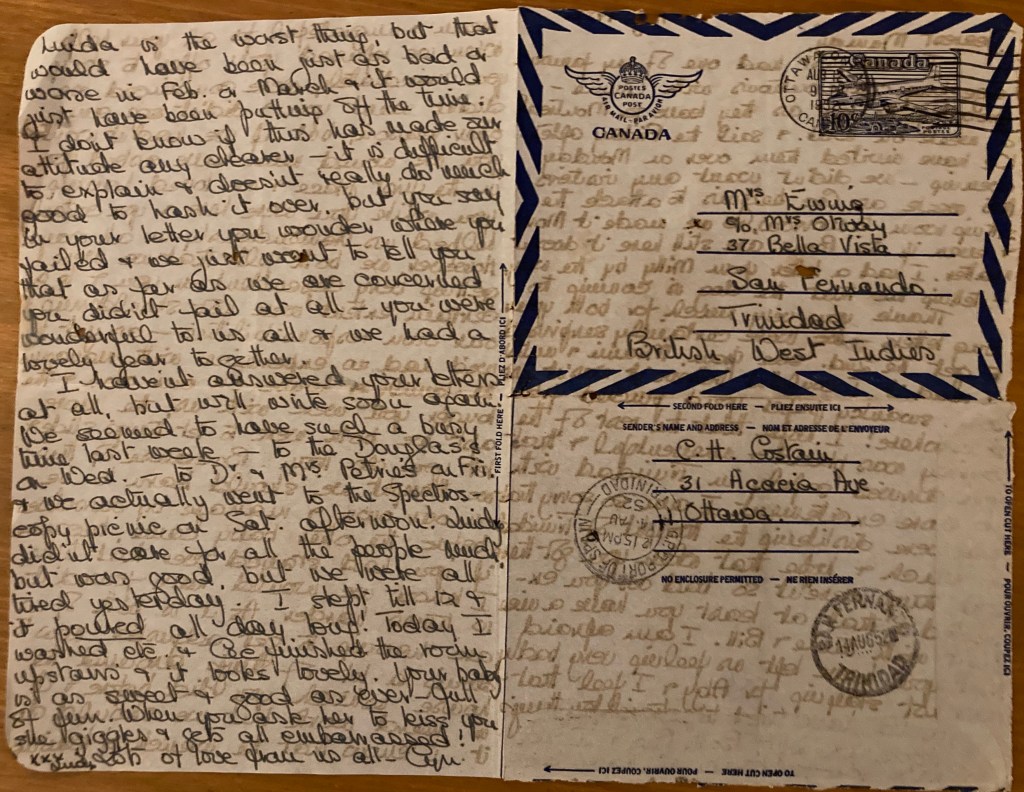 Linda is the worst thing, but that
would have been just as bad or
worse in Feb. or March & it would
just have been putting off the time.
I don't know if this has made our
attitude any clearer – it is difficult
to explain & doesn't really do much
good to hash it over. but you say
in your letter you wonder where you
failed & we just want to tell you
that as far as we are concerned
you didn't fail at all – you were
wonderful to us all & we had a
lovely year together.
I haven't answered your letters
at all, but will write soon again.
We seemed to have such a busy
time last week – to the Douglas's
on Wed. – to Dr. & Mrs. Petrie's on Fri.
& we actually went to the Spectros-
copy picnic on Sat. afternoon! Lindy
didn't care for all the people much
but was good, but we were all
tired yesterday. I slept till 12 &
it poured all day long! Today I
washed etc. & Ce finished the room
upstairs & it looks lovely. Your baby
is as sweet & good as ever – full
of fun. When you ask her to kiss you
she giggles & gets all embarrassed!
xxx Lindy Lots of love from us all – Cyn.
FIRST FOLD HERE – PLIEZ D'ABORD ICI
POSTES CANADA POST
AIR MAIL-PAR AVION
CANADA
OTTAWA
Canada
10¢
Mrs Ewing
c/o Mrs
37 Bella Vista
San Fernando
Trinidad
British West Indies
SECOND FOLD HERE – PLIEZ ENSUITE ICI
SENDER'S NAME AND ADDRESS – NOM ET ADRESSE DE L'ENVOYEUR
C.H. Costain
31 Acacia Ave
Ottawa.
PORT OF SPAIN TRINIDAD
2.15 PM
AU
52
NO ENCLOSURE PERMITTED – NE RIEN INSÉRER
SAN FERNANDO
AUG 52
TRINIDAD
TO OPEN CUT HERE – POUR OUVRIR, COUPEZ ICI
TO OPEN CUT HERE – POUR OUVRIR, COUPEZ ICI